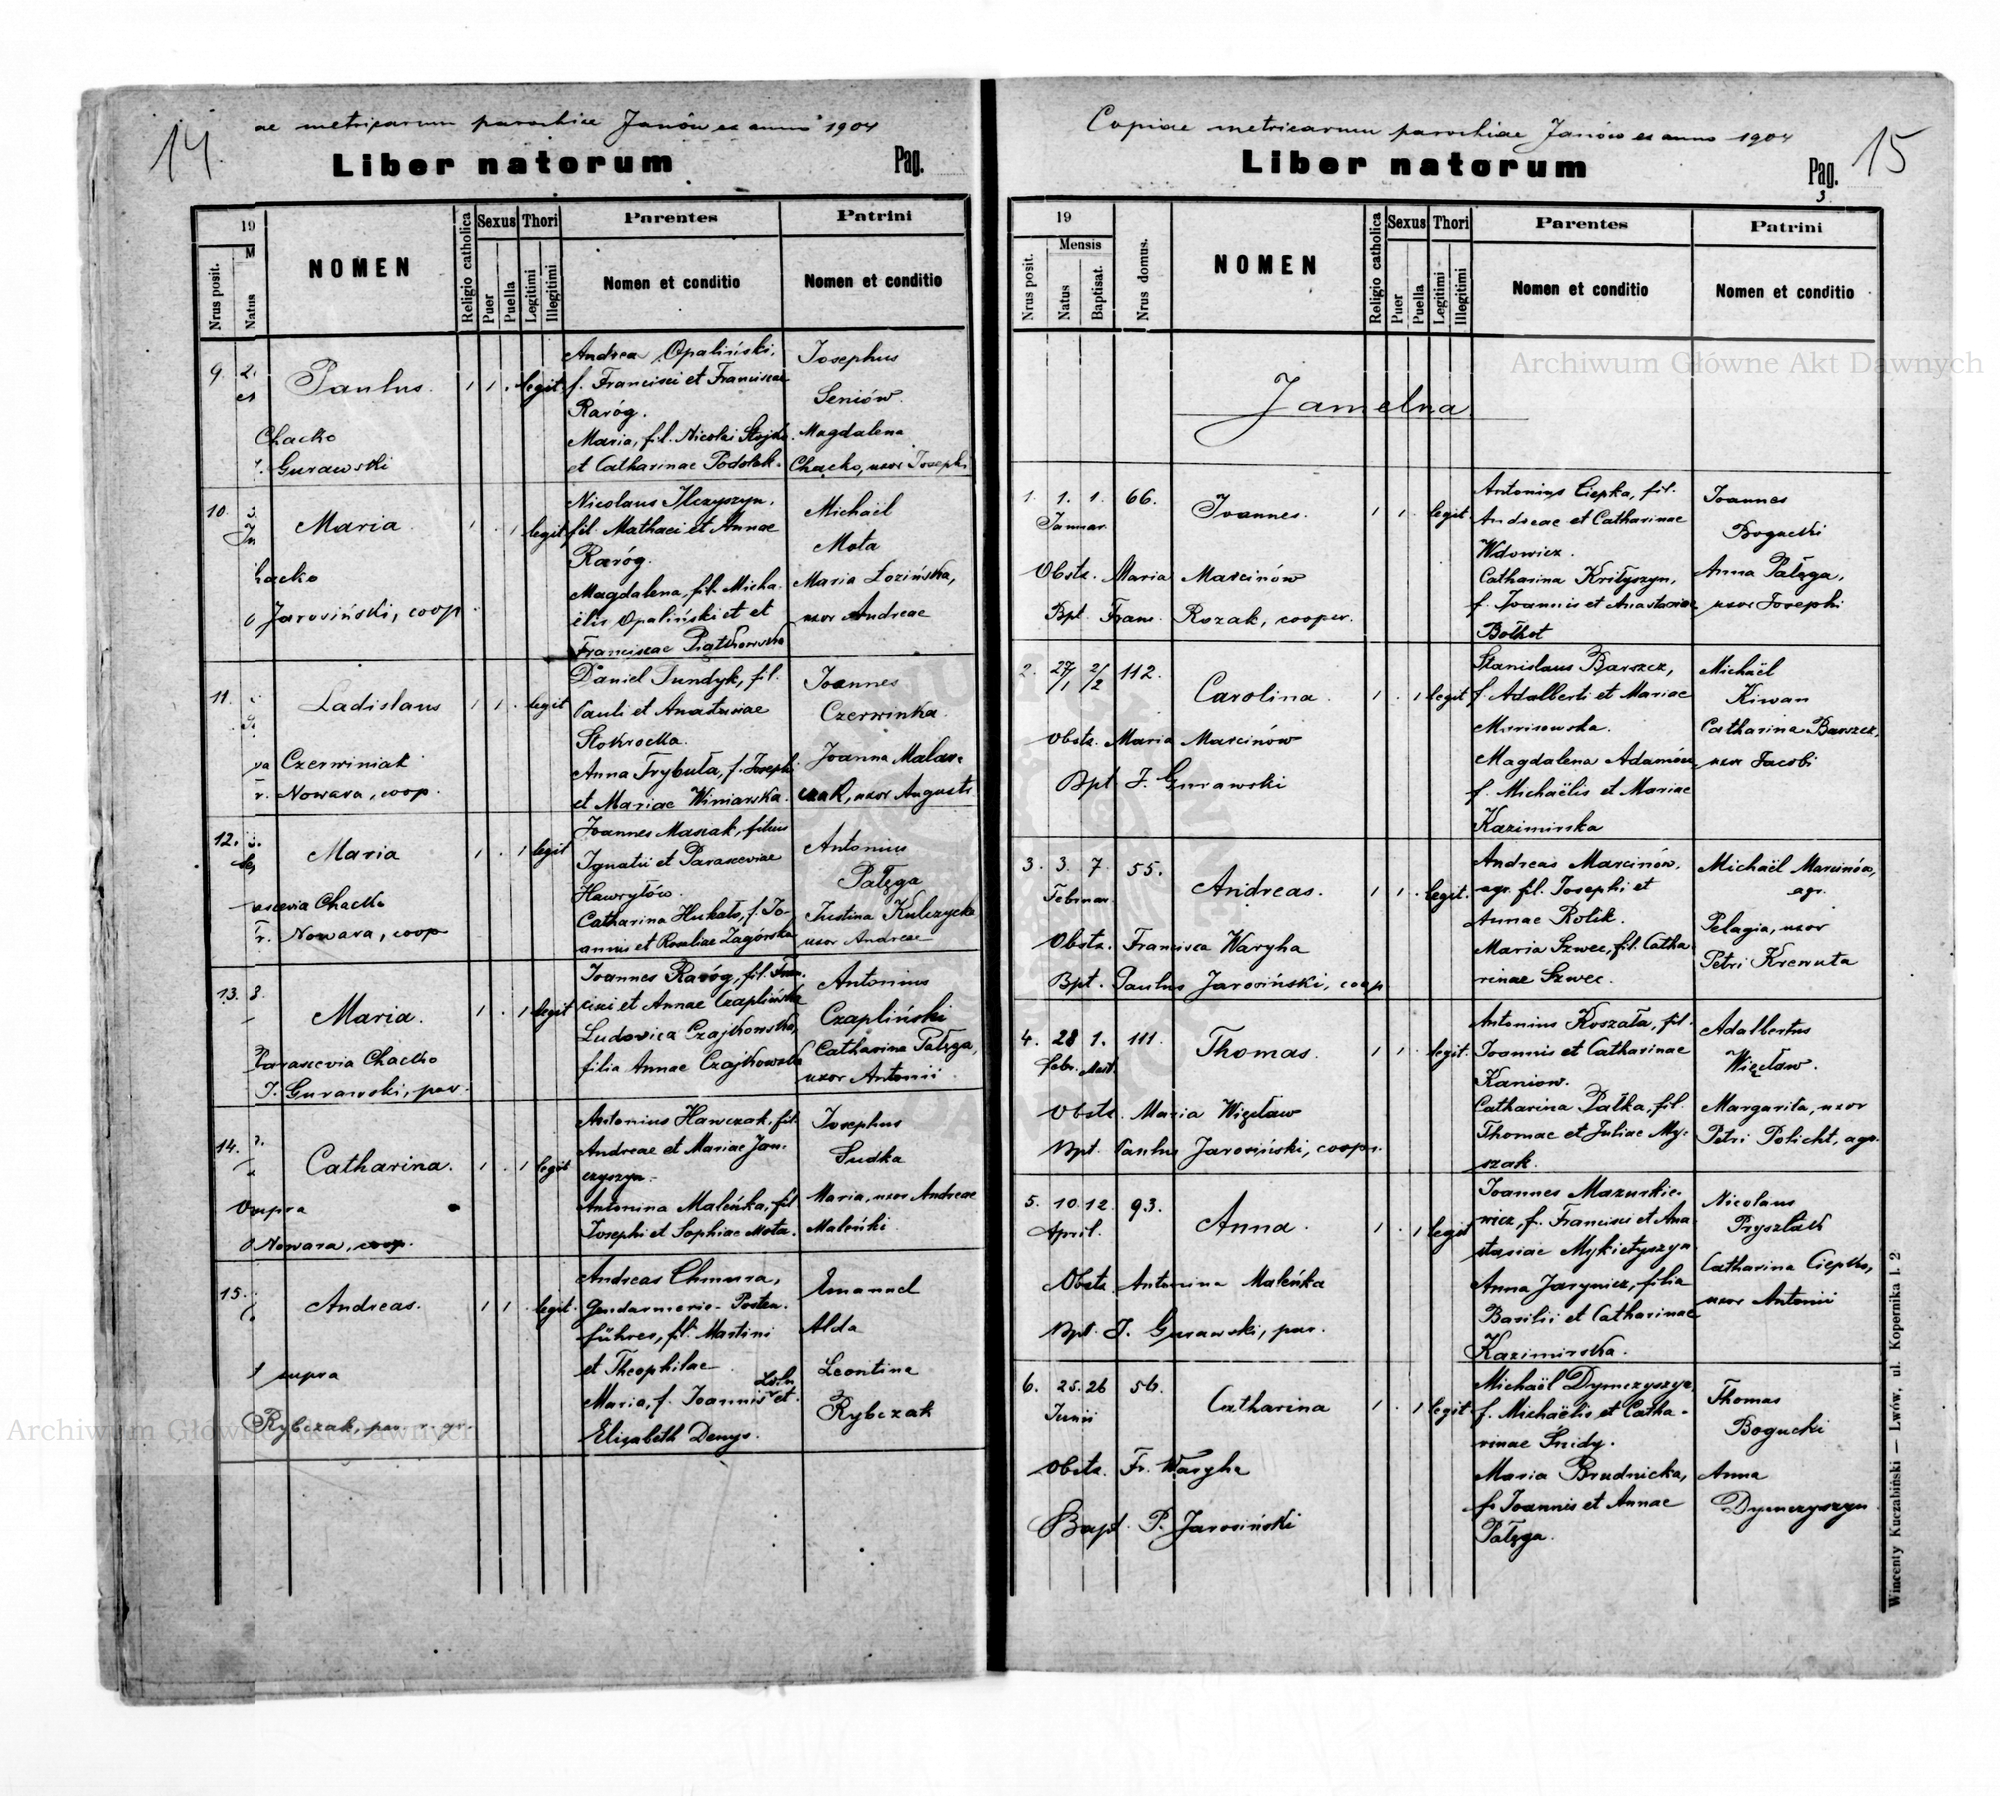 14.
ae metricarum parochiae Janów ex anno 1904
Liber natorum
Pag.
19
M
Nrus posit.
Natus
NOMEN
Religio catholica
Sexus
Puer
Puella
Thori
Legitimi
Illegitimi
Parentes
Nomen et conditio
Patrini
Nomen et conditio
9. 2.
Paulus.
1 1 . legit.
Chacko
Gurawski
Andreas Opaliński,
f. Francisci et Franciscae
Raróg.
Maria, fil. Nicolai
et Catharinae
Josephus
Seniów.
Magdalena
Chacko, uxor Josephi
10.
Maria.
1 . 1 legit
hacko
Jarosiński, coop
Nicolaus Ilczyszyn,
fil. Mathaei et Annae
Raróg.
Magdalena, fil. Micha-
elis Opaliński et et
Franciscae Piątkowska
Michaël
Mota
Maria Łozińska,
uxor Andreae
11.
Ladislaus
1 1 . legit
va Czerwiniak
r. Nowara, coop.
Daniel Dundyk, fil.
Pauli et Anastasiae
Stokrocka.
Anna Trybuła, f. Josephi
et Mariae Winiarska.
Joannes
Czerwinka.
Joanna Malar-
czak, uxor Augusti
12.
Maria
1 . 1 legit
ascevia Chacko
r. Nowara, coop
Joannes Maszak, filius
Ignatii et Parasceviae
Hawryłów.
Catharina Hukało, f. Jo-
annis et Rosaliae Zagórska
Antonius
Pałęga
Justina Kulczycka
uxor Andreae
13. 3.
Maria.
1 . 1 legit
Parascevia Chacko
J. Gurawski, par.
Joannes Raróg, fil. Fran-
cisci et Annae Czaplińska
Ludovica Czajkowska,
filia Annae Czajkowska
Antonius
Czapliński
Catharina Pałęga,
uxor Antonii
14.
Catharina.
1 . 1 legit
supra
Nowara, coop.
Antonius Hawczak, fil.
Andreae et Mariae Jan-
czyszyn.
Antonina Maleńka, fil
Josephi et Sophiae Mota.
Josephus
Sudka
Maria, uxor Andreae
Maleńki
15.
Andreas.
1 1 . legit.
supra
Rybczak, par. r. gr.
Andreas Chmura,
Gendarmerie-Posten-
führer, fil. Martini
et Theophilae
Maria, f. Joannis et
Elisabeth Denys.
Emanuel
Alda
Leontina
Rybczak
Copiae metricarum parochiae Janów ex anno 1904
Liber natorum
Pag.
3
15
19
Mensis
Nrus posit.
Natus
Baptisat.
Nrus domus.
NOMEN
Religio catholica
Sexus
Puer
Puella
Thori
Legitimi
Illegitimi
Parentes
Nomen et conditio
Patrini
Nomen et conditio
Jamelna
1. 1. 1. 66.
Januar.
Joannes.
1 1 . legit.
Obstz. Maria Marcinów
Bpt. Franc. Kozak, cooper.
Antonius Ciepka, fil.
Andreae et Catharinae
Wdowicz.
Catharina Krityszyn,
f. Joannis et Anastasiae
Bołkot
Joannes
Bogucki
Anna Pałęga,
uxor Josephi
2. 27/1 2/2 112.
Carolina.
1 . 1 legit
Obstz. Maria Marcinów
Bpt. J. Gurawski
Stanislaus Barszcz,
f. Adalberti et Mariae
Murisowska.
Magdalena Adamów,
f. Michaëlis et Mariae
Kazimirska
Michaël
Kiwan
Catharina Barszcz,
uxor Jacobi
3. 3. 7. 55.
Februar.
Andreas.
1 1 . legit.
Obstz. Francisca Waryha
Bpt. Paulus Jarosiński, coop
Andreas Marcinów,
agr. fil. Josephi et
Annae Rolik.
Maria Szwec, fil. Catha-
rinae Szwec.
Michaël Marcinów,
agr.
Pelagia, uxor
Petri Krewuta
4. 28 1. 111.
Febr. Mart.
Thomas.
1 1 . legit.
Obstz. Maria Więcław
Bpt. Paulus Jarosiński, coopr.
Antonius Koszała, fil.
Joannis et Catharinae
Kaniow.
Catharina Pałka, fil.
Thomae et Juliae My-
szak.
Adalbertus
Więcław.
Margarita, uxor
Petri Policht, agr.
5. 10. 12. 93.
April.
Anna.
1 . 1 legit
Obstz. Antonina Maleńka
Bpt. J. Gurawski, par.
Joannes Mazurkie-
wicz, f. Francisci et Ana-
stasiae Mykietyszyn.
Anna Jarynicz, filia
Basilii et Catharinae
Kazimirska.
Nicolaus
Pryszlak
Catharina Ciepka,
uxor Antonii
6. 25. 26 56.
Junii
Catharina
1 . 1 legit.
Obstz. Fr. Waryha
Bapt. P. Jarosiński
Michaël Dymczyszyn,
f. Michaëlis et Catha-
rinae Snidy.
Maria Brudnicka,
f. Joannis et Annae
Pałęga.
Thomas
Bogucki
Anna
Dymczyszyn
Wincenty Kuczabiński — Lwów, ul. Kopernika l. 2
Archiwum Główne Akt Dawnych
Archiwum Główne Akt Dawnych